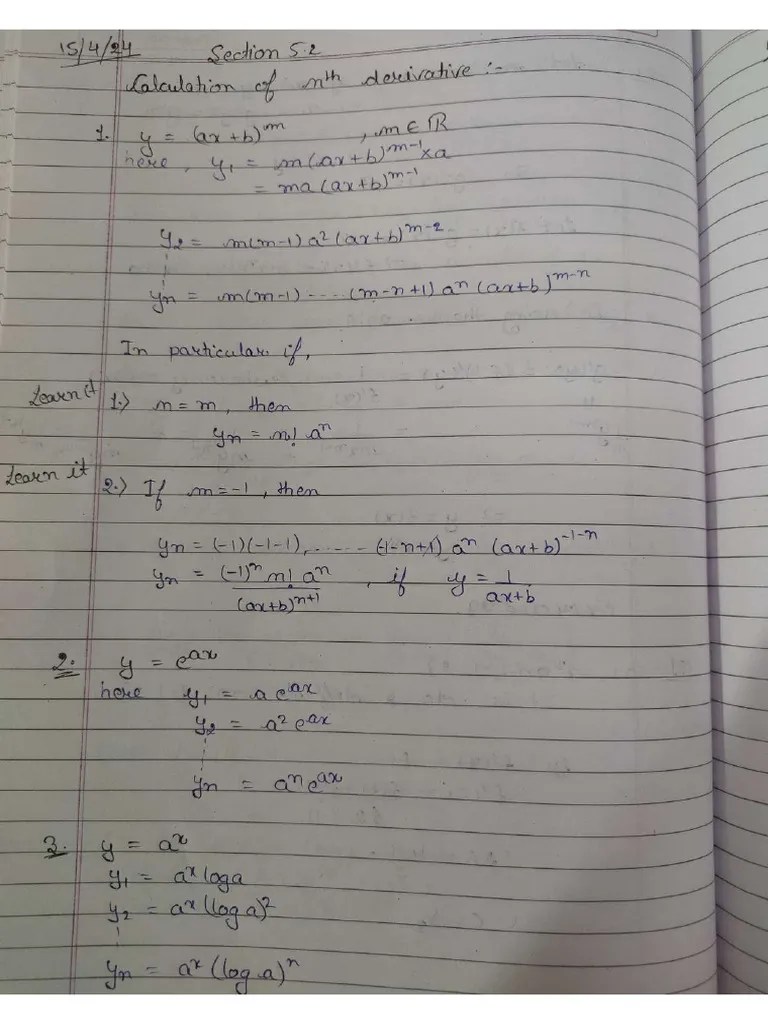 15/4/24 Section 5.2
Calculation of nth derivative :-
1. y = (ax+b)^m , m ∈ ℝ
here, y₁ = m(ax+b)^(m-1) × a
= ma(ax+b)^(m-1)
y₂ = m(m-1) a² (ax+b)^(m-2)
yₙ = m(m-1) ---- (m-n+1) aⁿ (ax+b)^(m-n)
In particular if,
Learn it 1.) n = m, then
yₙ = n! aⁿ
Learn it 2.) If m = -1, then
yₙ = (-1)(-1-1), ------ (-1-n+1) aⁿ (ax+b)^(-1-n)
yₙ = (-1)ⁿ n! aⁿ / (ax+b)^(n+1) , if y = 1 / ax+b
2. y = e^(ax)
here y₁ = a e^(ax)
y₂ = a² e^(ax)
yₙ = aⁿ e^(ax)
3. y = a^x
y₁ = a^x log a
y₂ = a^x (log a)²
yₙ = a^x (log a)ⁿ